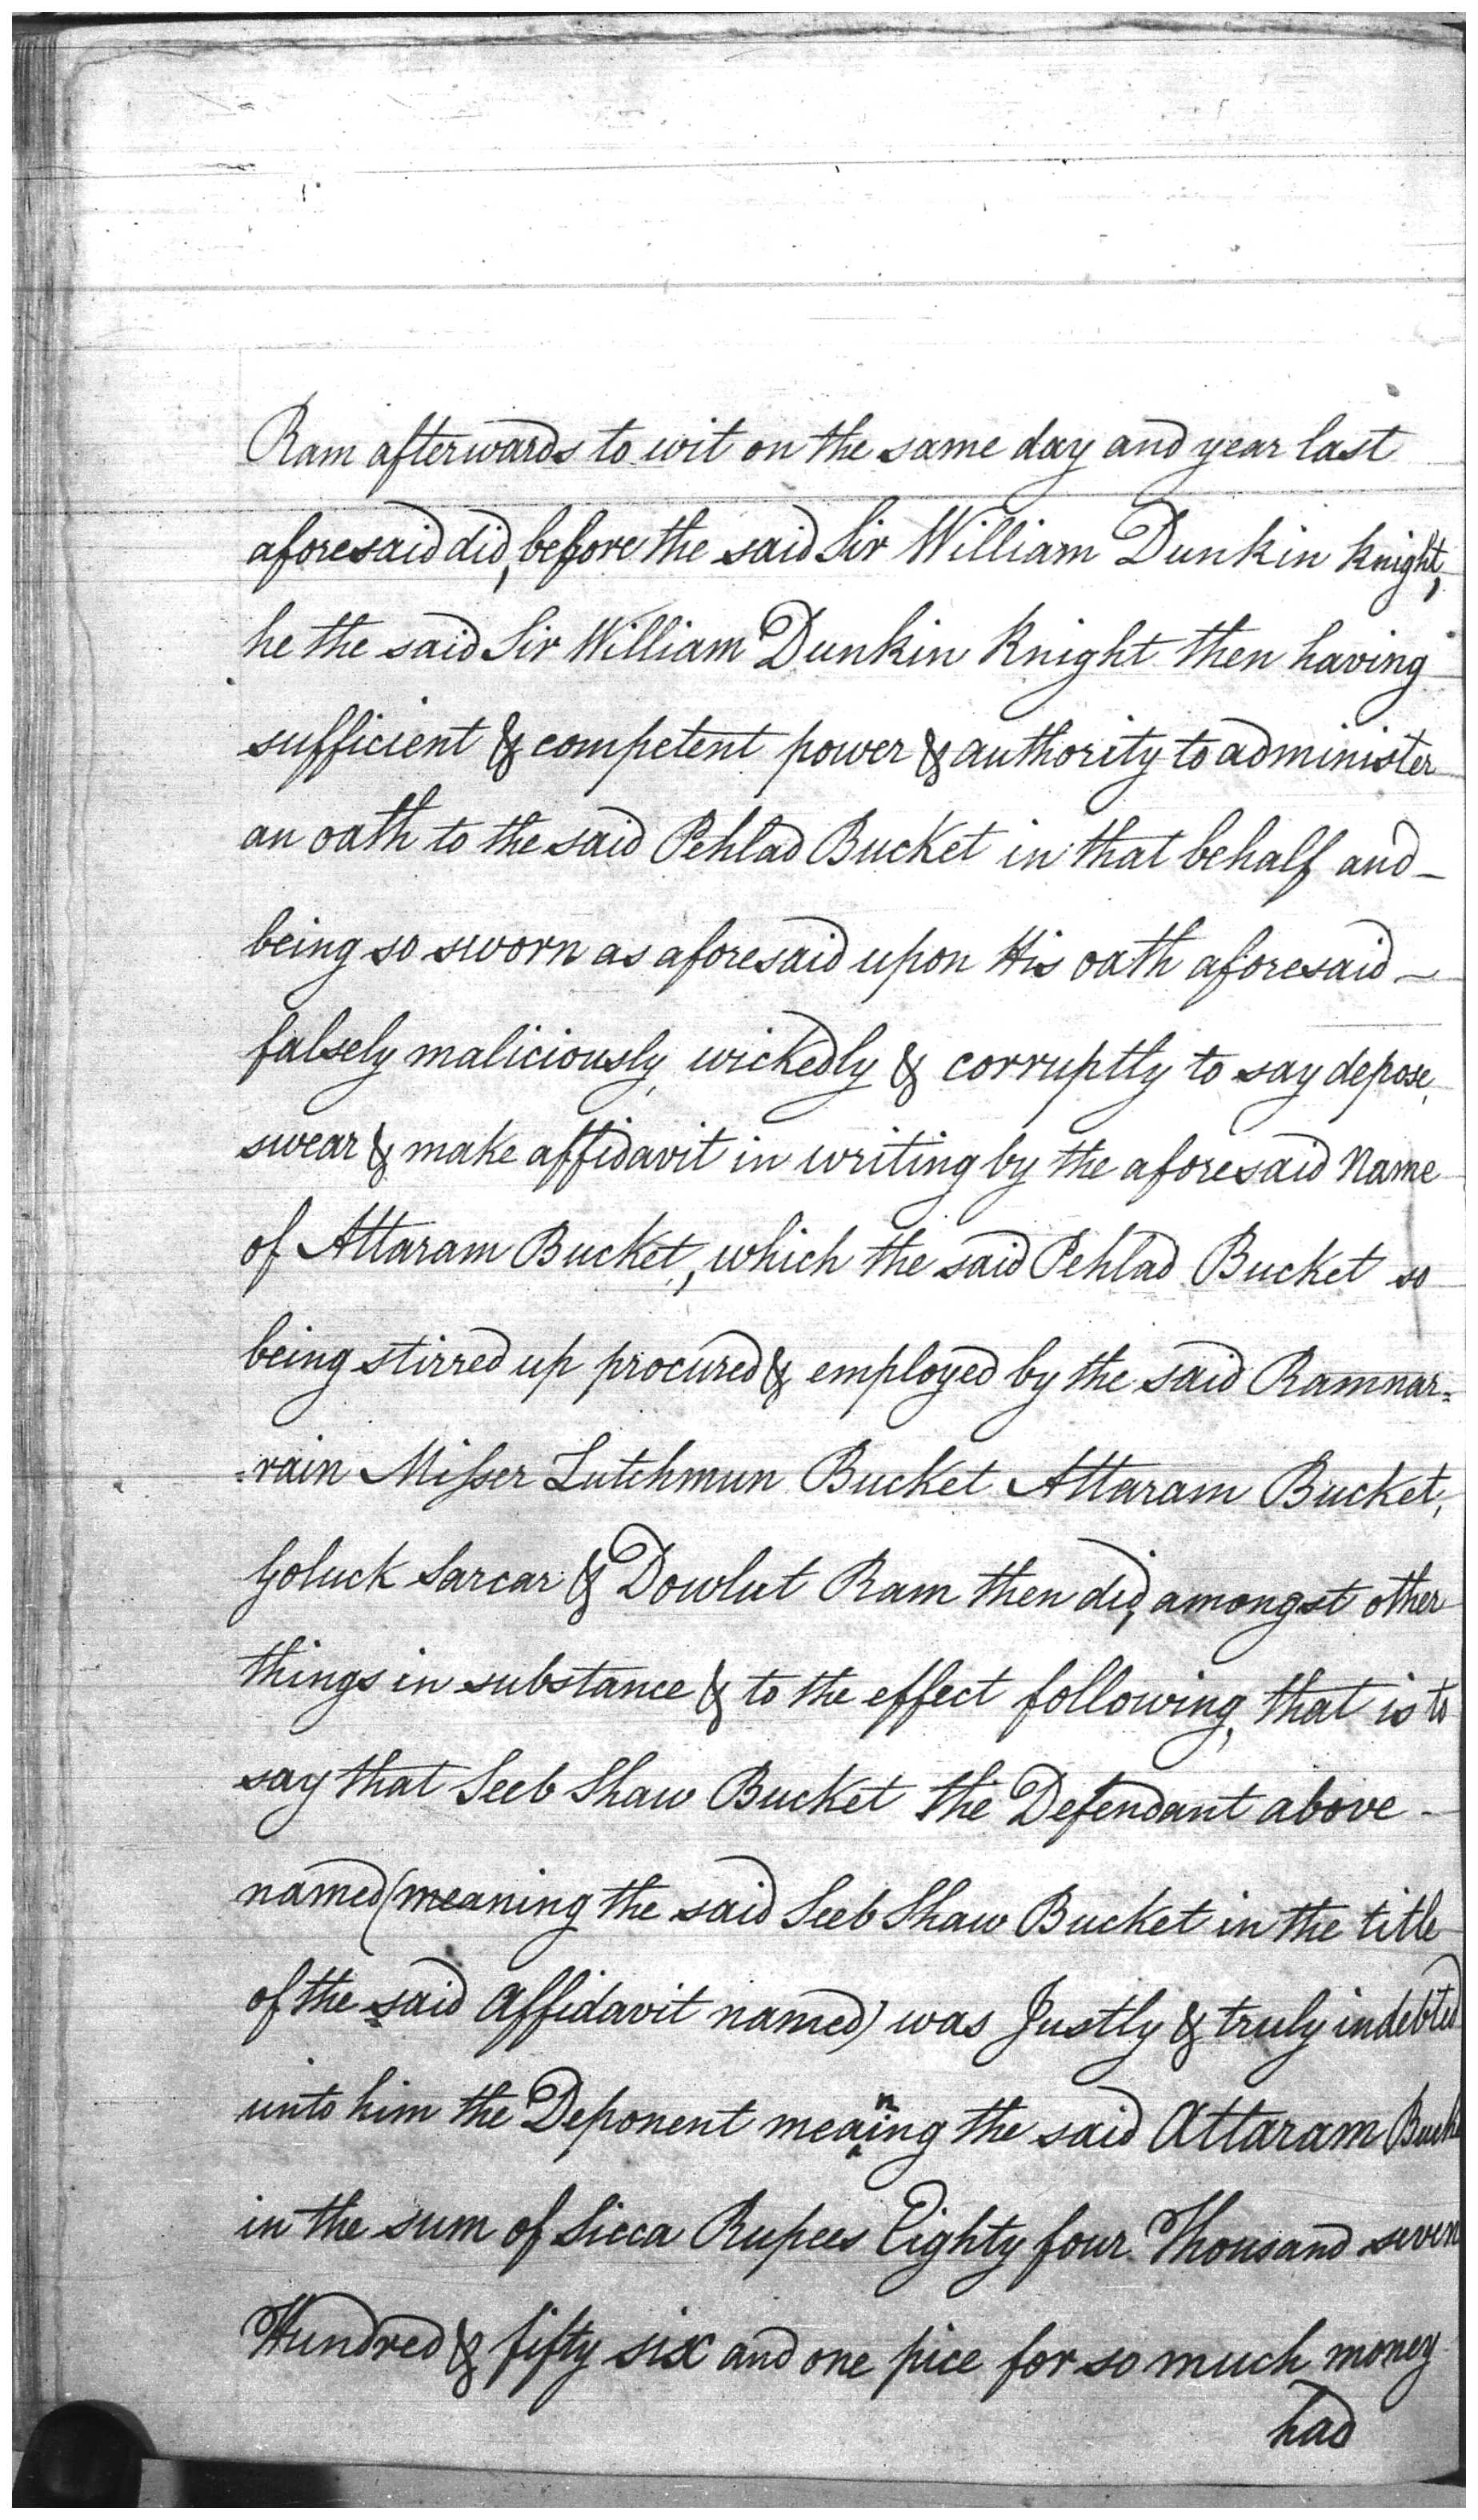 Ram afterwards to wit on the same day and year last
aforesaid did, before the said Sir William Dunkin Knight,
he the said Sir William Dunkin Knight then having
sufficient & competent power & authority to administer
an oath to the said Pehlad Bucket in that behalf and –
being so sworn as aforesaid upon His oath aforesaid –
falsely maliciously, wickedly & corruptly to say depose,
swear & make affidavit in writing by the aforesaid Name
of Attaram Bucket, which the said Pehlad Bucket so
being stirred up procured & employed by the said Ramnar=
=rain Misser Lutchmun Bucket Attaram Bucket,
Goluck Sarcar & Dowlut Ram then did, amongst other
things in substance & to the effect following, that is to
say that Seeb Shaw Bucket the Defendant above –
named (meaning the said Seeb Shaw Bucket in the title
of the said Affidavit named) was Justly & truly indebted
unto him the Deponent meaning the said Attaram Bucke
in the sum of Sicca Rupees Eighty four Thousand seven
Hundred & fifty six and one pice for so much money
had